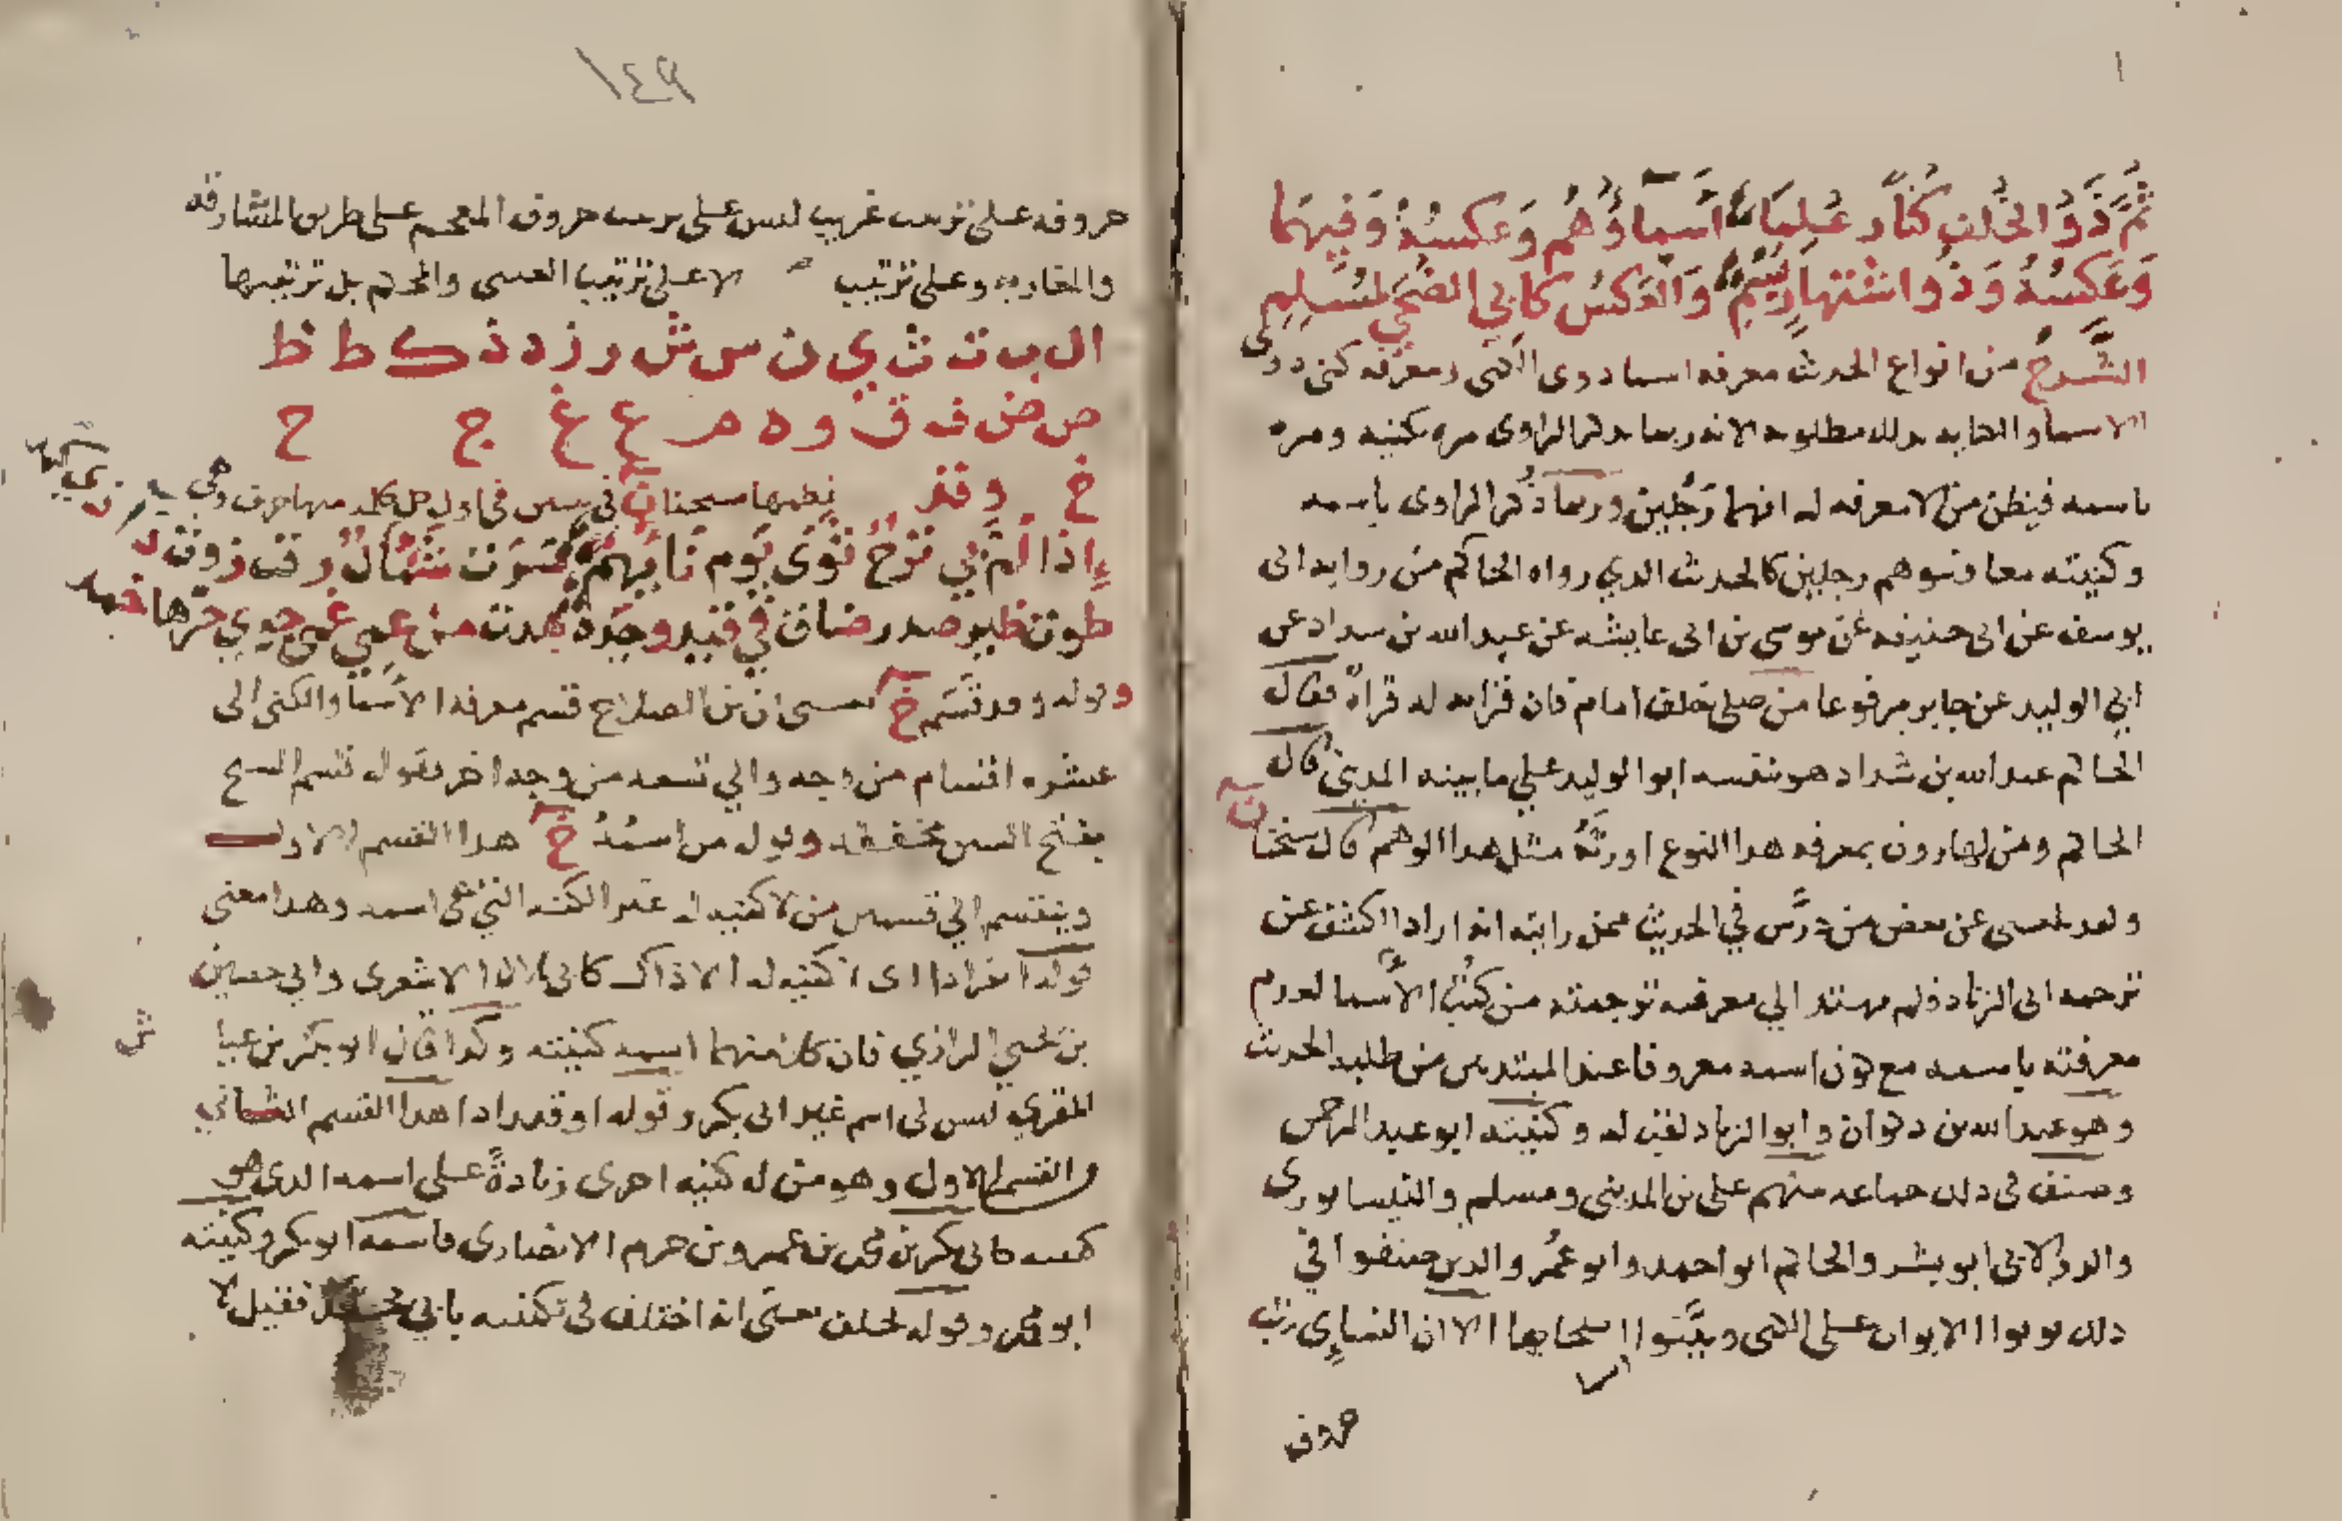 ثم ذوو الخلف كنا وعلما أسماؤهم وعكسه وفيهما
وعكسه وذو اشتهار بسم والعكس كأبي الضحى لمسلم
الشرح من انواع الحديث معرفه اسما ذوى الكنى ومعرفه كنى ذوى
الاسما والعنايه بذلك مطلوبه لانه ربما ذكر الراوى مره بكنيه ومره
باسمه فيظن من لا معرفه له انهما رجلين وربما ذكر الراوى باسمه
وكنيته معا فتوهم رجلين كالحديث الذي رواه الحاكم من روايه ابى
يوسف عن ابى حنيفه عن موسى بن ابى عايشه عن عبد الله بن شداد عن
ابي الوليد عن جابر مرفوعا من صلى خلف امام فان قراته له قراة فقال
الحاكم عبد الله بن شداد هو بنفسه ابو الوليد علي ما بينه المديني قال
الحاكم ومن تهاون بمعرفه هذا النوع اورثه مثل هذا الوهم قال شيخنا ن
ولقد بلغنى عن بعض من درس في الحديث ممن رايته انه اراد الكشف عن
ترجمه ابى الزناد فلم يهتد الي معرفه ترجمته من كتب الأسما لعدم
معرفته باسمه مع كون اسمه معروفا عند المبتدين من طلبه الحديث
وهو عبد الله بن ذكوان وابو الزناد لقب له وكنيته ابو عبد الرحمن
وصنف فى ذلك جماعه منهم على بن المدينى ومسلم والنيسابورى
والدولابى ابو بشر والحاكم ابو احمد وابو عمر والذين صنفوا في
ذلك بوبوا الابواب على الكنى وبينوا اسما اصحابها الا ان النساي رتب
حروف
حروفه على ترتيب غريب ليس على ترتيب حروف المعجم على طريق المشارقه
والمغاربه وعلى ترتيب الا على ترتيب العين والمحكم بل ترتيبها
ال ب ت ث ي ن س ش ر ز د ذ ك ط ظ
ص ض ف ق و ه م ع غ ج ح
خ وقد نظمها شيخنا ن في بيتين في اول كل كلمه منها حرف وهي
إذا لم بي ترح ثوى يوم نايهم سرت شمال رق زوت
طوت ظير صدر ضاق في قيد وجده هدت من عمي غمى جوي حرها
وقوله وقد قسم خ يعنى ان بن الصلاح قسم معرفه الأسما والكنى الى
عشره اقسام من وجه والي تسعه من وجه اخر بقوله قسم الشيخ
بفتح السين مخففه وقوله من اسمه خ هذا القسم الاول
وينقسم الي قسمين من لا كنيه له غير الكنيه التي هى اسمه وهذا معنى
قوله انفرادا اى لا كنيه له الا ذاك كابى بلال الاشعرى وابي حصين
بن يحيي الرازي فان كلا منهما اسمه كنيته وكذا قال ابو بكر بن عيا ش
المقري ليس لى اسم غير ابى بكر وقوله او قد زادا هذا القسم الثاني
والقسم الاول وهو من له كنيه اخرى زيادةً على اسمه الذى هو
كنيه كابى بكر بن محمد بن عمرو بن حزم الانصارى فاسمه ابو بكر وكنيته
ابو محمد وقوله بخلف يعنى انه اختلف فى تكنيه بابي محمد فقيل لا